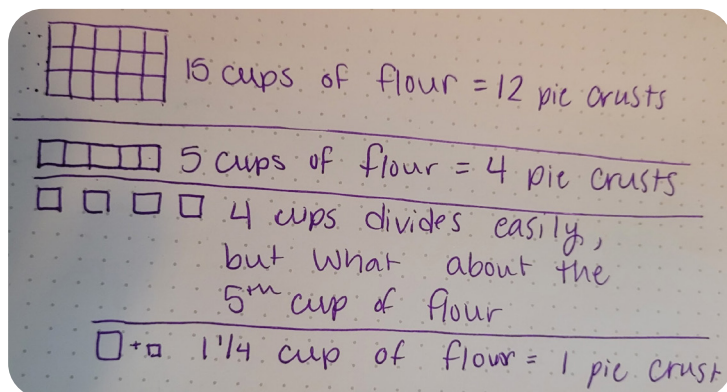 15 cups of flour = 12 pie crusts
5 cups of flour = 4 pie crusts
4 cups divides easily,
but what about the
5th cup of flour
+ 1 1/4 cup of flour = 1 pie crust